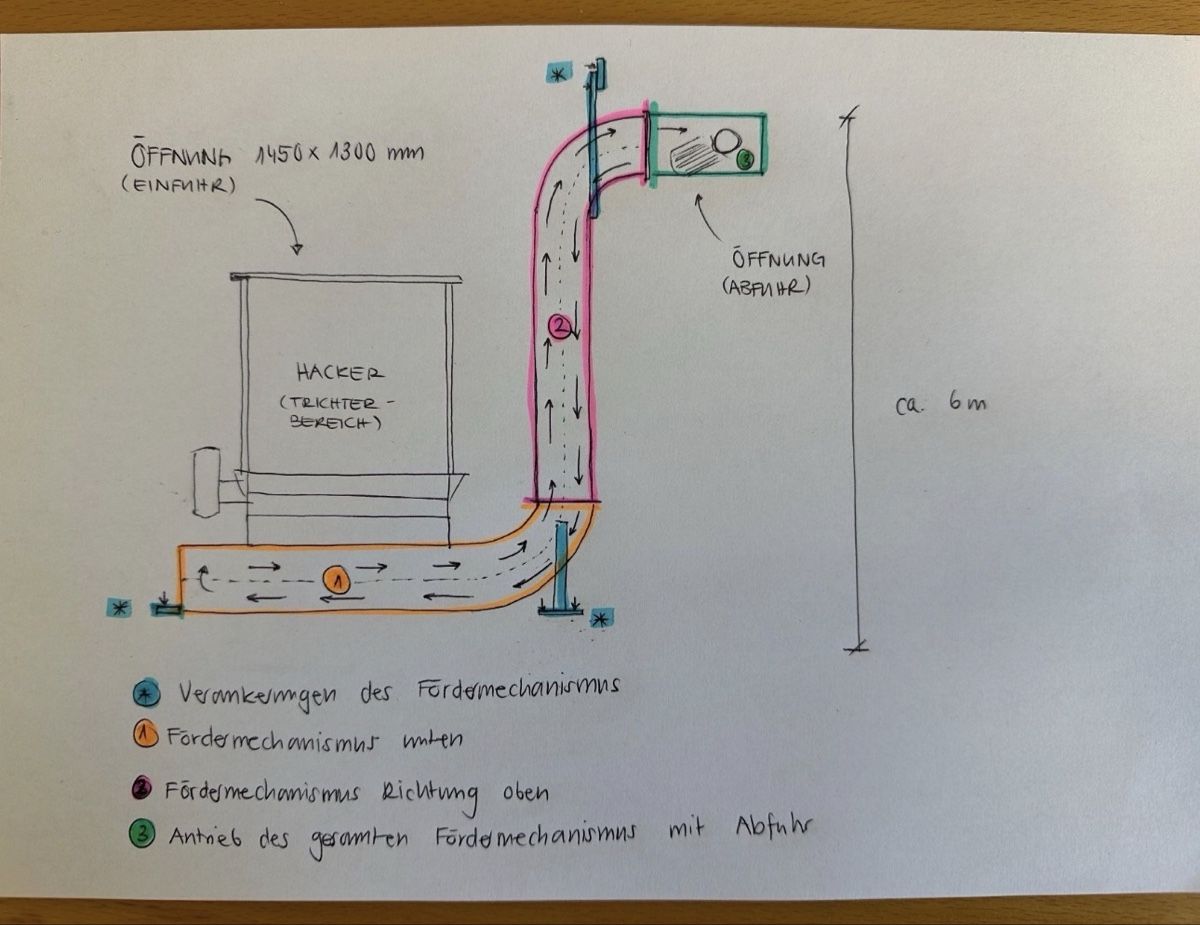 *
ÖFFNUNG 1450 x 1300 mm
(EINFUHR)
3
ÖFFNUNG
(ABFUHR)
2
HACKER
(TRICHTER-
BEREICH)
ca. 6m
1
*
*
* Verankerungen des Fördermechanismus
1 Fördermechanismus unten
2 Fördermechanismus Richtung oben
3 Antrieb des gesamten Fördermechanismus mit Abfuhr